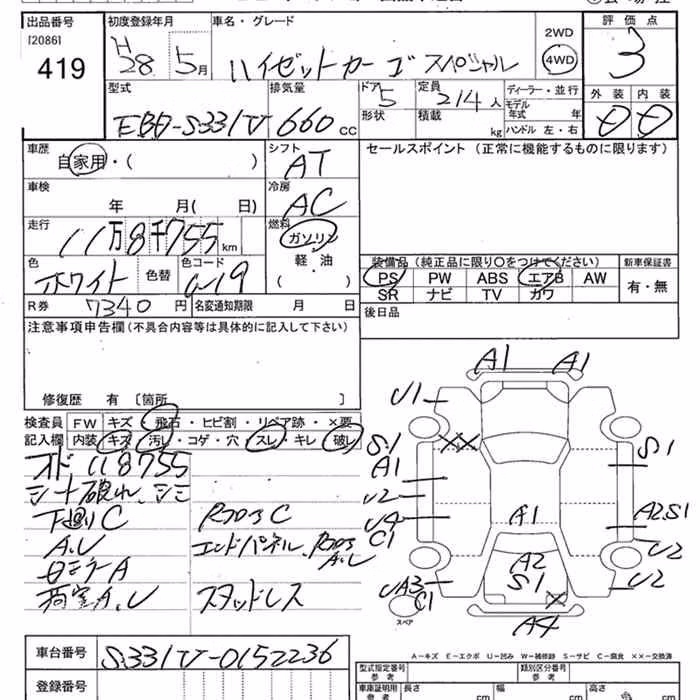 出品番号
[2086]
419
初度登録年月
H
28 5月
車名・グレード
ハイゼットカーゴ スペシャル
2WD
4WD
評価点
3
外装 内装
型式
EBD-S331V
排気量
660 cc
ドア 5
形状
定員
2/4人
積載
kg
ディーラー・並行
モデル年式 年
ハンドル 左・右
車歴
自家用・( )
シフト
AT
セールスポイント (正常に機能するものに限ります)
車検
年 月( 日)
冷房
AC
走行
11万8千755 km
燃料
ガソリン
軽・油
( )
色
ホワイト
色替
色コード
装備品 (純正品に限り○をつけてください)
新車保証書
PS PW ABS エアB AW
SR ナビ TV カワ
有・無
R券 7340円
名変通知期限 月 日
後日品
注意事項申告欄(不具合内容等は具体的に記入して下さい)
修復歴 有 〔箇所 〕
検査員
記入欄
FW キズ・飛石・ヒビ割・リペア跡・×要
内装 キズ・汚レ・コゲ・穴・スレ・キレ・破レ
オド 118755
シート破れ、シミ
下廻りC
フロアC
A.U
エンドパネル、フロア
A.U
荷室A.U
スタッドレス
A1 A1
U1
XX
S1
A1
S1
U2
U4
C1
A1
A2S1
U2
A2
S1
UA3
C1
U2
X
A4
スペア
A-キズ E-エクボ U-凹み W-補修跡 S-サビ C-腐食 ××-交換済
車台番号
S331V-0152236
登録番号
型式指定番号
参考
類別区分番号
参考
車庫証明用
参考
長さ cm
幅 cm
高さ cm